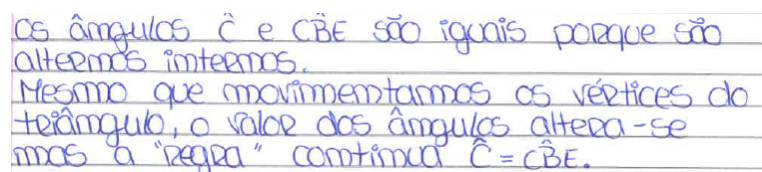 Os ângulos Ĉ e CB̂E são iguais porque são
alternos internos.
Mesmo que movimentarmos os vértices do
triângulo, o valor dos ângulos altera-se
mas a "regra" continua Ĉ = CB̂E.